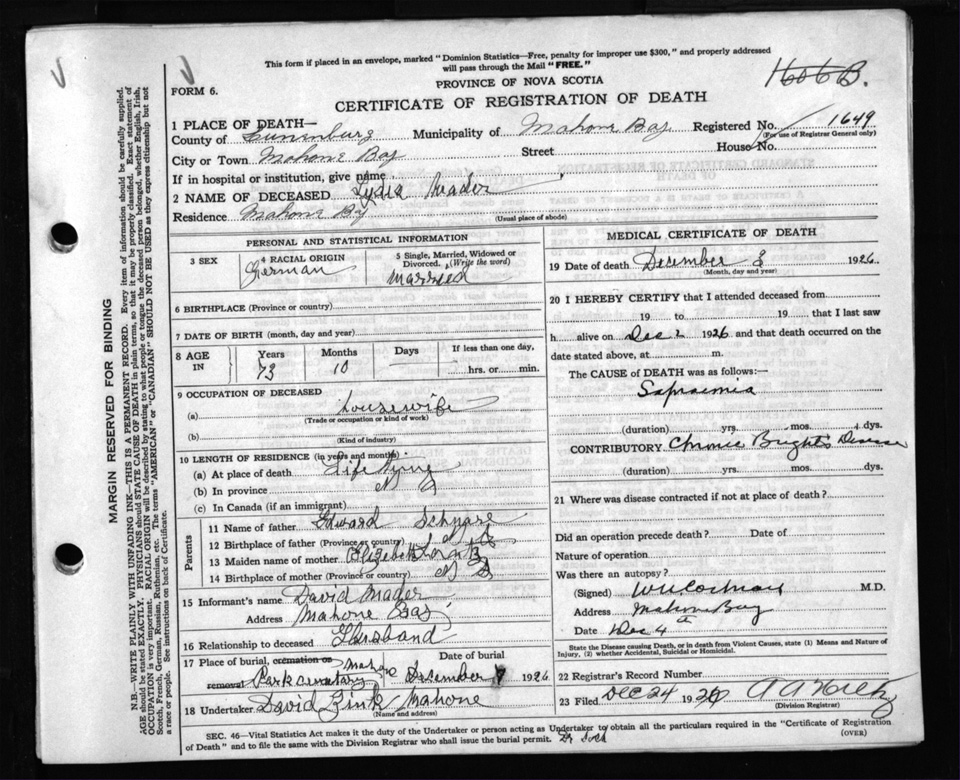 This form if placed in an envelope, marked "Dominion Statistics—Free, penalty for improper use $300," and properly addressed
will pass through the Mail "FREE."
1606 B.
PROVINCE OF NOVA SCOTIA
FORM 6.
CERTIFICATE OF REGISTRATION OF DEATH
1 PLACE OF DEATH—
County of Lunenburg Municipality of Mahone Bay Registered No. 1649
(For use of Registrar General only)
City or Town Mahone Bay Street House No.
If in hospital or institution, give name
2 NAME OF DECEASED Lydia Mader
Residence Mahone Bay
(Usual place of abode)
PERSONAL AND STATISTICAL INFORMATION
3 SEX
4 RACIAL ORIGIN German
5 Single, Married, Widowed or
Divorced. (Write the word)
Married
6 BIRTHPLACE (Province or country)
7 DATE OF BIRTH (month, day and year)
8 AGE IN
Years Months Days If less than one day,
73 10 hrs. or min.
9 OCCUPATION OF DECEASED
(a) housewife
(Trade or occupation or kind of work)
(b)
(Kind of industry)
10 LENGTH OF RESIDENCE (in years and months)
(a) At place of death Life
(b) In province N S
(c) In Canada (if an immigrant)
Parents
11 Name of father Edward Schnare
12 Birthplace of father (Province or country) N S
13 Maiden name of mother Elizabeth
14 Birthplace of mother (Province or country) N S
15 Informant's name David Mader
Address Mahone Bay
16 Relationship to deceased Husband
17 Place of burial, cremation or
removal Park cemetary Mahone
Date of burial
December 7 1926
18 Undertaker David Zink Mahone
(Name and address)
MEDICAL CERTIFICATE OF DEATH
19 Date of death December 3 1926
(Month, day and year)
20 I HEREBY CERTIFY that I attended deceased from
19 to 19 that I last saw
h alive on Dec 2 1926 and that death occurred on the
date stated above, at m.
The CAUSE of DEATH was as follows:—
Sapraemia
(duration) yrs. mos. dys.
CONTRIBUTORY Chronic Brights Disease
(duration) yrs. mos. dys.
21 Where was disease contracted if not at place of death?
Did an operation precede death? Date of
Nature of operation
Was there an autopsy?
(Signed) W N Cochran M.D.
Address Mahone Bay
Date Dec 4th
State the Disease causing Death, or in death from Violent Causes, state (1) Means and Nature of
Injury, (2) whether Accidental, Suicidal or Homicidal.
22 Registrar's Record Number
23 Filed Dec 24 1926
(Division Registrar)
SEC. 46—Vital Statistics Act makes it the duty of the Undertaker or person acting as Undertaker to obtain all the particulars required in the "Certificate of Registration
of Death" and to file the same with the Division Registrar who shall issue the burial permit.
(OVER)
MARGIN RESERVED FOR BINDING
N.B.—WRITE PLAINLY WITH UNFADING INK—THIS IS A PERMANENT RECORD. Every item of information should be carefully supplied.
AGE should be stated EXACTLY. PHYSICIANS should STATE CAUSE OF DEATH in plain terms, so that it may be properly classified. Exact statement of
OCCUPATION is very important. RACIAL ORIGIN will be described by stating to what people or tongue the deceased person belonged, whether English, Irish,
Scotch, French, German, Russian, Ruthenian, etc. The terms "AMERICAN" or "CANADIAN" SHOULD NOT BE USED as they express citizenship but not
a race or people. See instructions on back of Certificate.